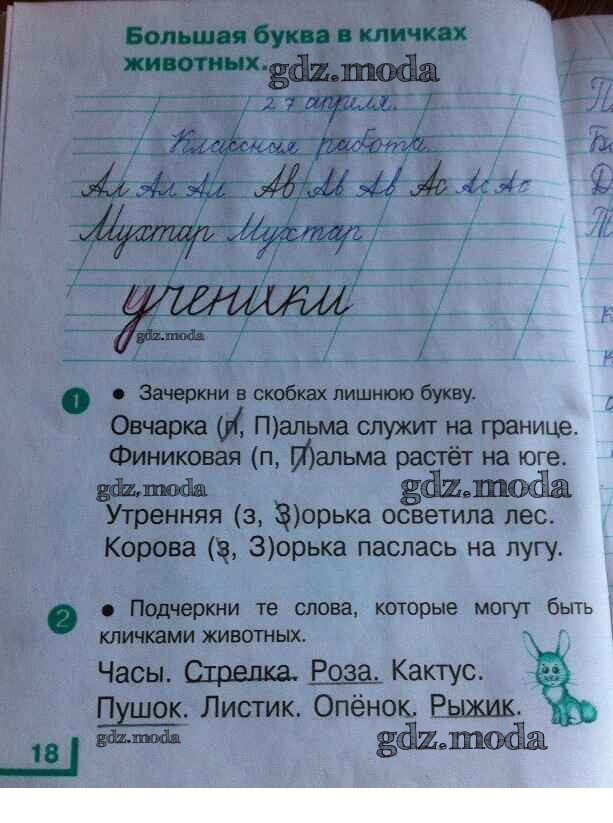 Большая буква в кличках
животных.
gdz.moda
27 апреля.
Классная работа.
Ал Ал Ал Ав Ав Ав Ас Ас Ас
Мухтар Мухтар
ученики
gdz.moda
1 • Зачеркни в скобках лишнюю букву.
Овчарка (п, П)альма служит на границе.
Финиковая (п, П)альма растёт на юге.
gdz.moda gdz.moda
Утренняя (з, З)орька осветила лес.
Корова (з, З)орька паслась на лугу.
2 • Подчеркни те слова, которые могут быть
кличками животных.
Часы. Стрелка. Роза. Кактус.
Пушок. Листик. Опёнок. Рыжик.
gdz.moda gdz.moda
18